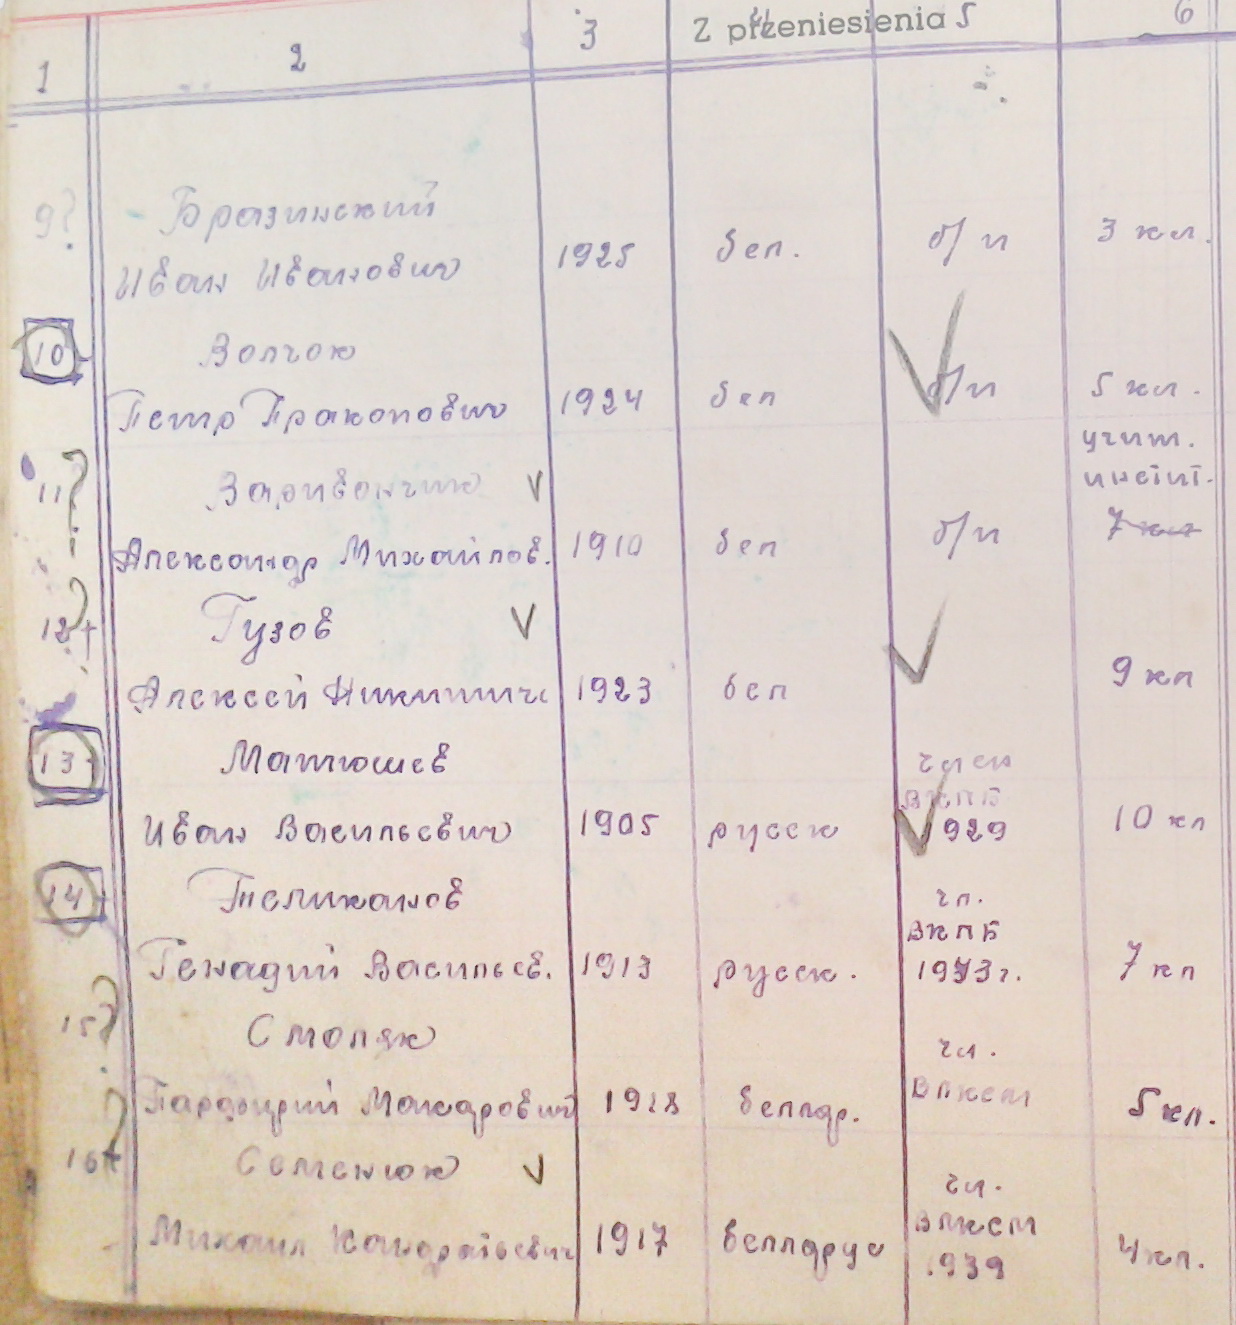 1 2 3 Z przeniesienia 5 6
9? Бразинский
Иван Иванович 1925 бел. б/п 3 кл.
10 Волчок
Петр Пракопович 1924 бел б/п 5 кл.
учит.
инстит.
11? Заривончик V
Александр Михайлов. 1910 бел б/п 7 кл
12+ ? Гузов V
Алексей Никитич 1923 бел 9 кл
13+ Матюшев член
ВКПБ
Иван Васильевич 1905 русск 1929 10 кл
14+ Теликанов чл.
ВКПБ
Генадий Васильев. 1913 русск. 1943г. 7 кл
15? Смоляк чл.
Макарович 1928 беллар. ВЛКСМ 5 кл.
16+ ? Семенюк V чл.
ВЛКСМ
Михаил Кандратьевич 1917 белларус 1939 4 кл.